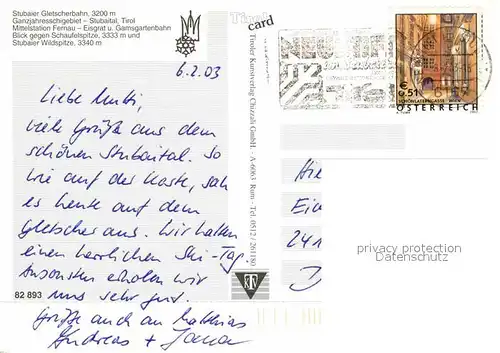 Stubaier Gletscherbahn, 3200 m
Ganzjahresschigebiet – Stubaital, Tirol
Mittelstation Fernau – Eisgrat u. Gamsgartenbahn
Blick gegen Schaufelspitze, 3333 m und
Stubaier Wildspitze, 3340 m
card
6.2.03
Liebe Mutti,
viele Grüße aus dem
schönen Stubaital. So
wie auf der Karte, sah
es heute auf dem
Gletscher aus. Wir hatten
einen herrlichen Ski-Tag.
Ansonsten erholen wir
uns sehr gut.
Grüße auch an Matthias
Andreas +
82 893
Tiroler Kunstverlag Chizzali GmbH. · A-6063 Rum · Tel. 0512 / 261180
€ 0,51
SCHÖNLATERNGASSE · WIEN
ÖSTERREICH
241
privacy protection
Datenschutz